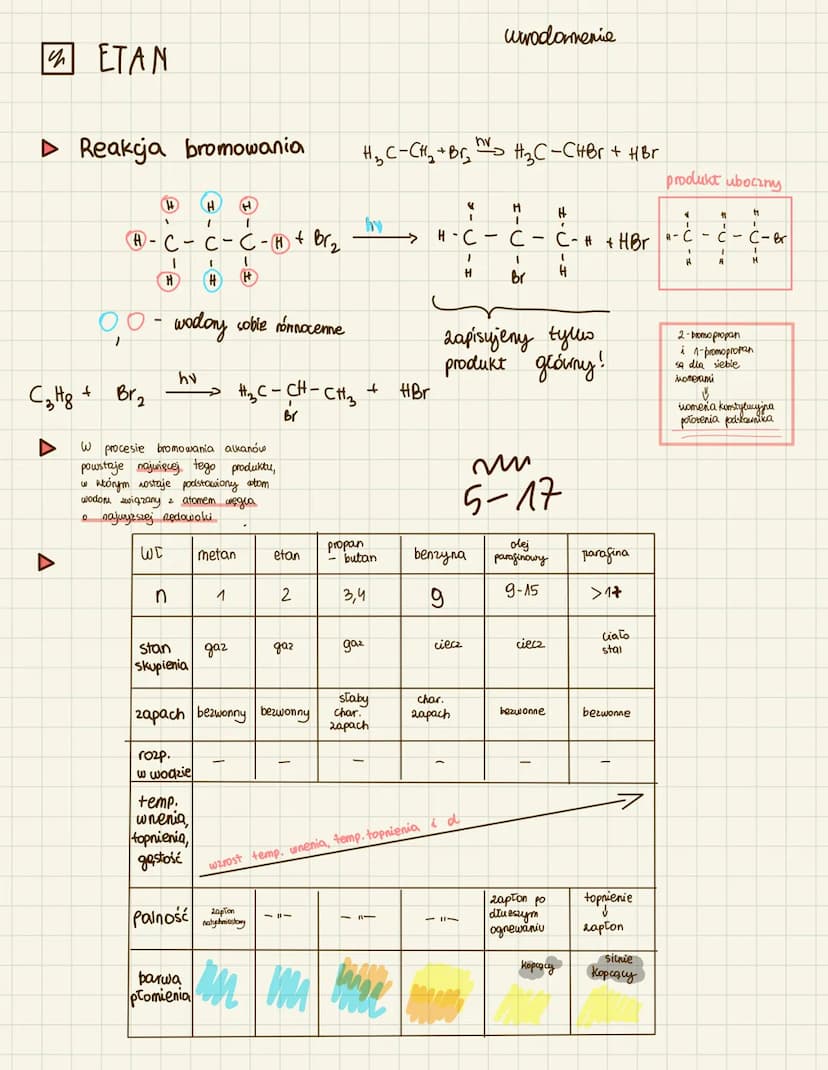 uwodornienie
ETAN
Reakcja bromowania
H₃C-CH₂+Br₂ hv→ H₃C-CHBr + HBr
produkt uboczny
H H H
H - C - C - C - H + Br₂ hv→ H - C - C - C - H + HBr
H H H
H Br H
H H H
H - C - C - C - Br
H H H
, - wodory sobie równocenne
zapisujemy tylko
produkt główny!
2-bromopropan
i 1-bromopropan
są dla siebie
izomerami
izomeria konstytucyjna
położenia podstawnika
C₃H₈ + Br₂ hv→ H₃C - CH - CH₃ + HBr
Br
W procesie bromowania alkanów
powstaje najwięcej tego produktu,
w którym zostaje podstawiony atom
wodoru związany z atomem węgla
o najwyższej rzędowości.
5-17
metan etan propan - butan benzyna olej parafinowy parafina
n 1 2 3,4 9 9-15 >17
stan skupienia gaz gaz gaz ciecz ciecz ciało stał
zapach bezwonny bezwonny słaby char. zapach char. zapach bezwonne bezwonne
rozp. w wodzie - - - - - -
temp.
wrzenia,
topnienia,
gęstość
wzrost temp. wrzenia, temp. topnienia i d
palność zapłon natychmiastowy -"- -"- -"- zapłon po dłuższym ogrzewaniu topnienie ↓ zapłon
barwa płomienia kopcący silnie kopcący